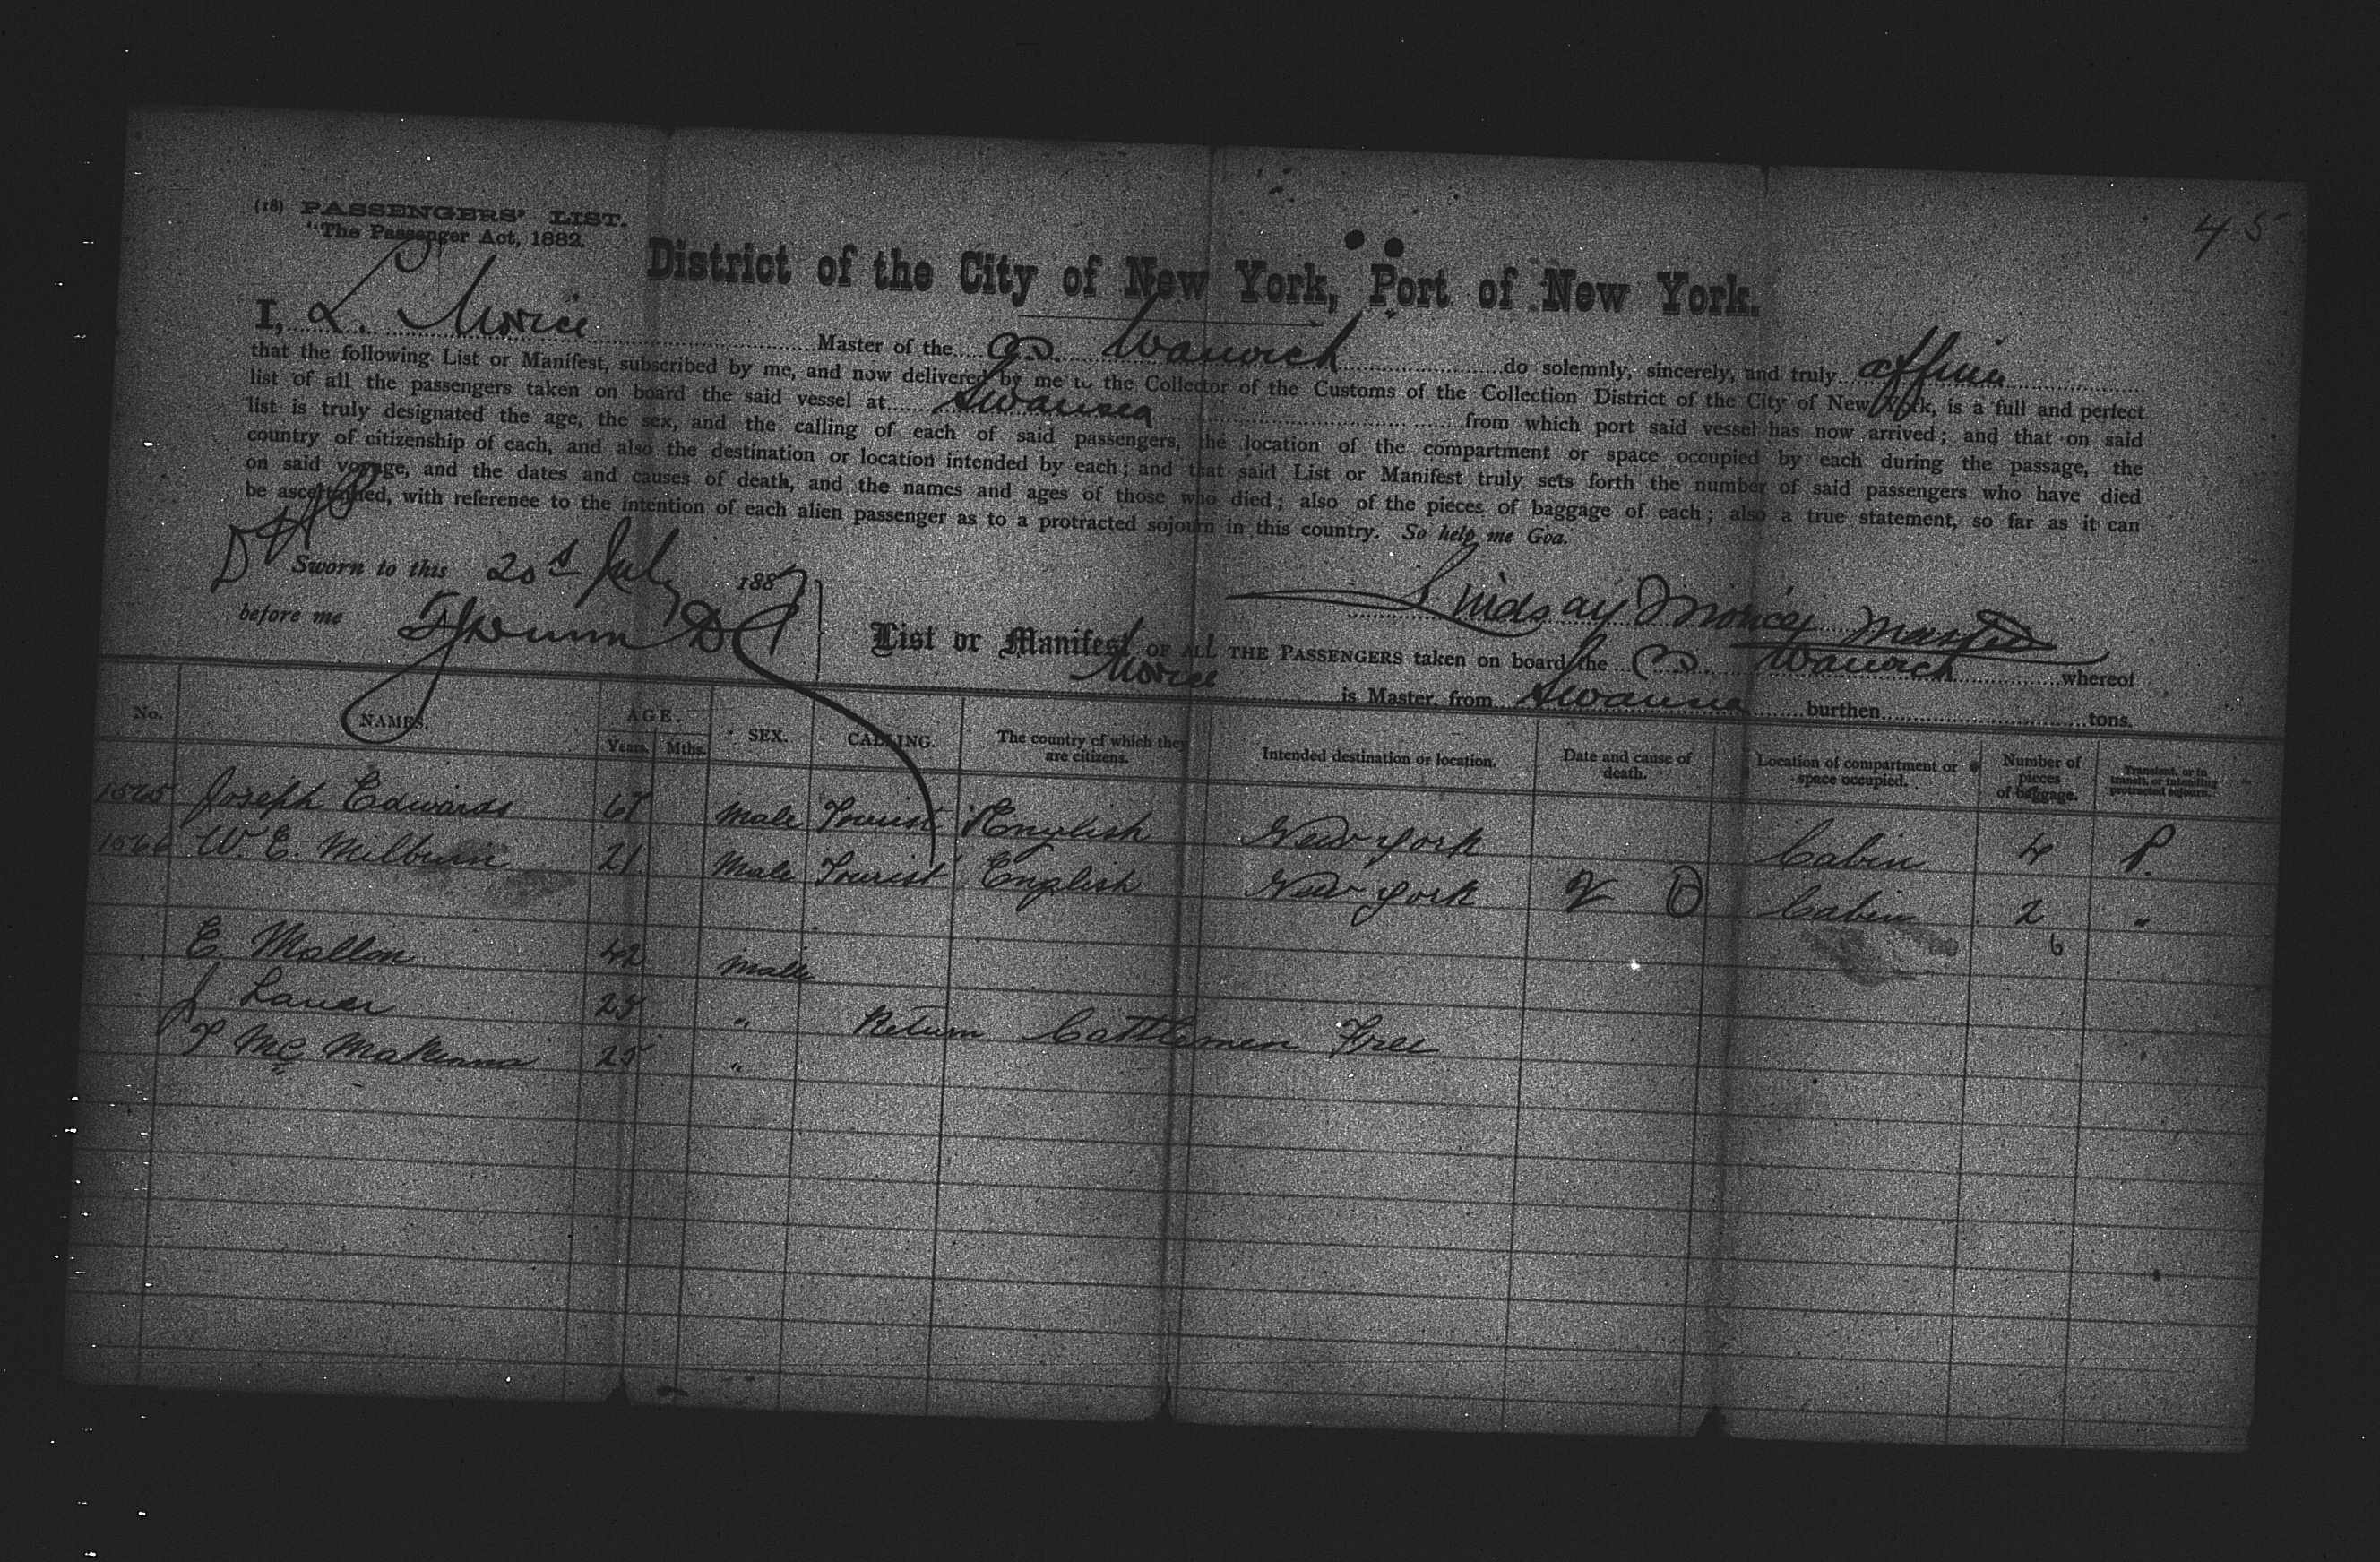 45
(18) PASSENGERS' LIST.
"The Passenger Act, 1882.
District of the City of New York, Port of New York.
I, L. Morice Master of the SS Warwick do solemnly, sincerely, and truly affirm
that the following List or Manifest, subscribed by me, and now delivered by me to the Collector of the Customs of the Collection District of the City of New York, is a full and perfect
list of all the passengers taken on board the said vessel at Swansea from which port said vessel has now arrived; and that on said
list is truly designated the age, the sex, and the calling of each of said passengers, the location of the compartment or space occupied by each during the passage, the
country of citizenship of each, and also the destination or location intended by each; and that said List or Manifest truly sets forth the number of said passengers who have died
on said voyage, and the dates and causes of death, and the names and ages of those who died; also of the pieces of baggage of each; also a true statement, so far as it can
be ascertained, with reference to the intention of each alien passenger as to a protracted sojourn in this country. So help me God.
Sworn to this 20th July 1887
Lindsay Morice Master
before me
List or Manifest OF ALL THE PASSENGERS taken on board the SS Warwick whereof
Morice is Master, from Swansea burthen tons.
No. NAMES. AGE. Years. Mths. SEX. CALLING. The country of which they are citizens. Intended destination or location. Date and cause of death. Location of compartment or space occupied. Number of pieces of baggage. Transient, or in transit, or intending protracted sojourn.
1565 Joseph Edwards 67 Male Tourist English New York Cabin 4 P.
1566 W. E. Milburn 21 Male Tourist English New York Cabin 2 "
6
E. Mallon 42 Male
J Laner 25 " Return Cattlemen Free
T Mc MaKenna 25 "